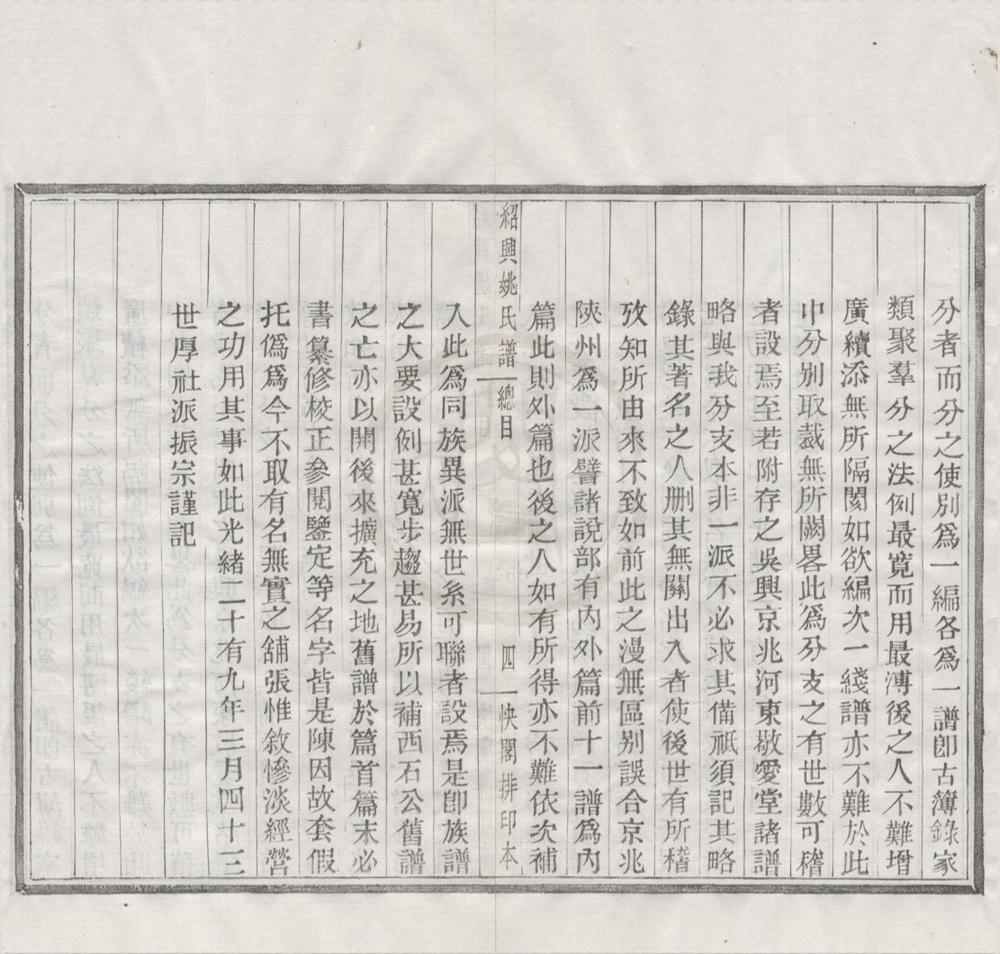 分者而分之使別爲一編各爲一譜卽古簿錄家
類聚羣分之法例最寬而用最溥後之人不難增
廣續添無所隔閡如欲編次一綫譜亦不難於此
中分別取裁無所闕畧此爲分支之有世數可稽
者設焉至若附存之吳興京兆河東敬愛堂諸譜
略與我分支本非一派不必求其備祇須記其略
錄其著名之人删其無關出入者使後世有所稽
攷知所由來不致如前此之漫無區别誤合京兆
陝州爲一派譬諸說部有內外篇前十一譜爲內
篇此則外篇也後之人如有所得亦不難依次補
紹興姚氏譜 總目 四 快閣排印本
入此爲同族異派無世系可聯者設焉是卽族譜
之大要設例甚寬步趨甚易所以補西石公舊譜
之亡亦以開後來擴充之地舊譜於篇首篇末必
書纂修校正參閱鑒定等名字皆是陳因故套假
托僞爲今不取有名無實之舖張惟敘慘淡經營
之功用其事如此光緒二十有九年三月四十三
世厚社派振宗謹記